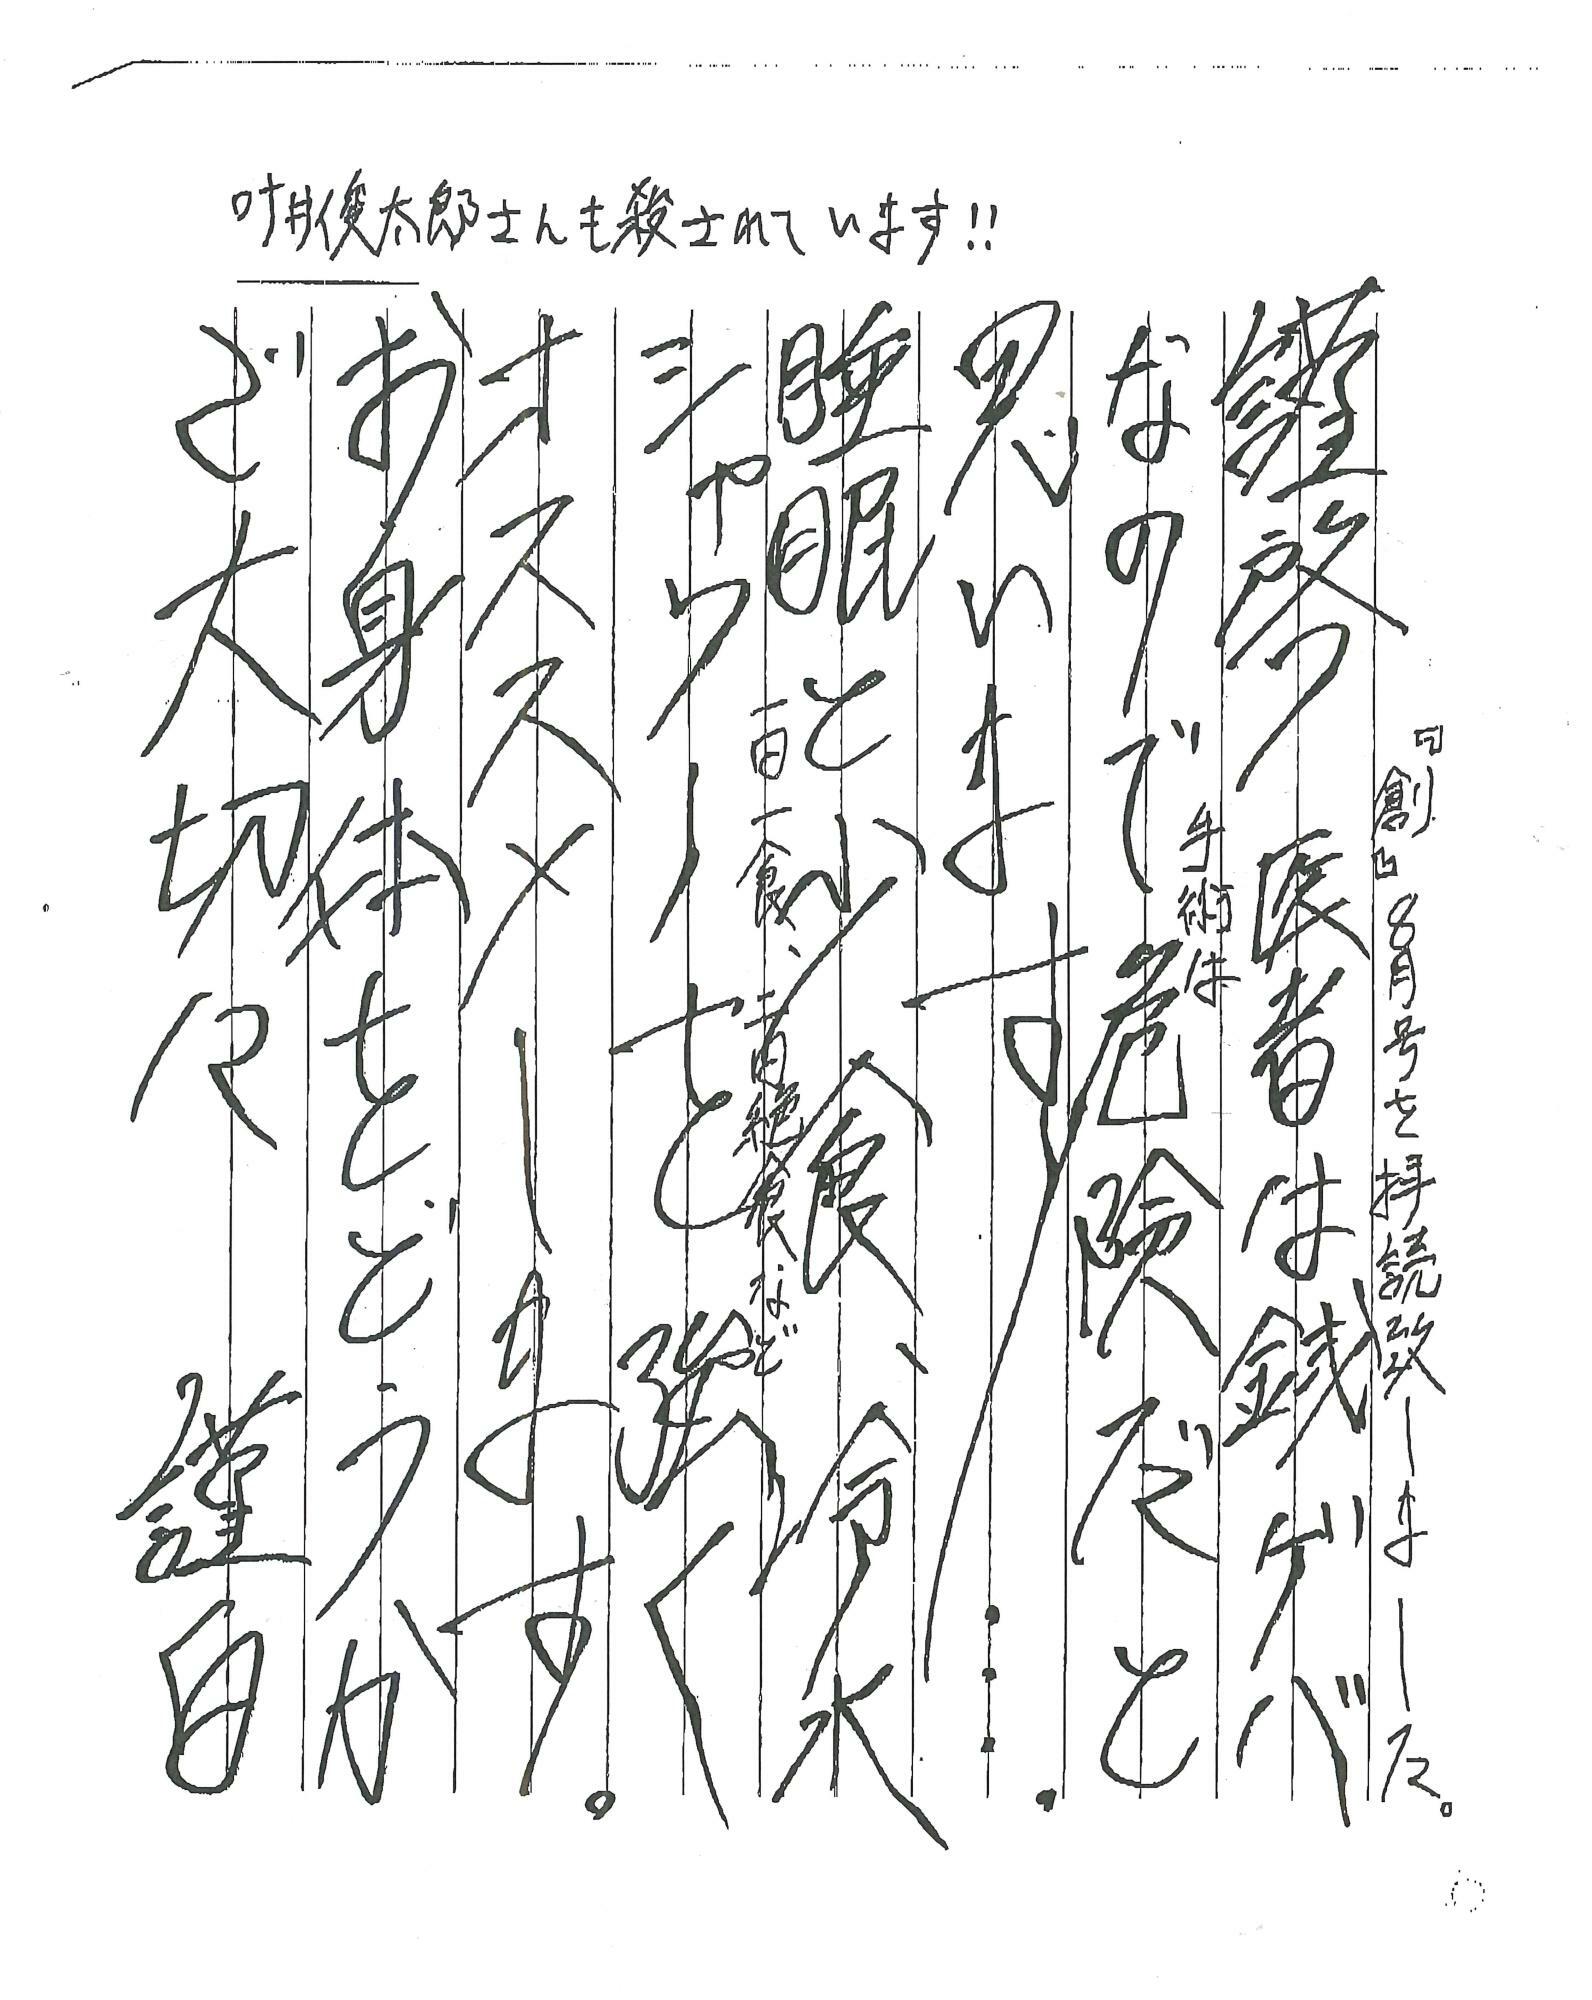 叶井俊太郎さんも殺されています!!
『創』8月号を拝読致しました。
謹啓 医者は銭ゲバ
なので手術は危険だと
思います…。
睡眠と小食、冷水
一日一食、一日絶食など
シャワーを強く
オススメします。
お身体をどうか
ご大切に
謹白